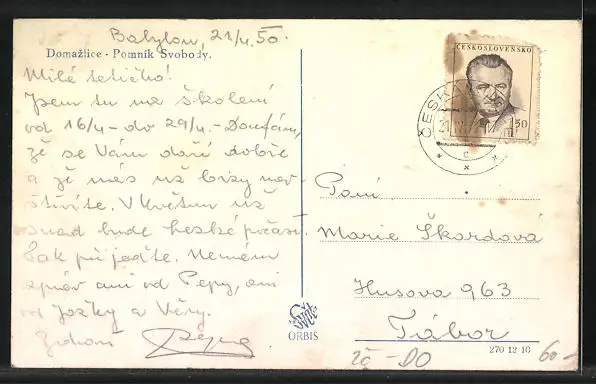 Babylon, 21/4.50.
Domažlice - Pomník Svobody.
Milá tetičko!
Jsem tu na školení
od 16/4 - do 29/4. - Doufám,
že se Vám daří dobře
a že nás už brzy nav-
štívíte. V květnu už
snad bude hezké počasí.
Tak přijeďte. Nemám
zpráv ani od Pepy, ani
od Jozky a Věry.
Zdraví
ČESKOSLOVENSKO
1,50
ČESK
21.IV.
Paní
Marie Škardová
Husova 963
Tábor
ORBIS
270 12 10
zč - DO
60-